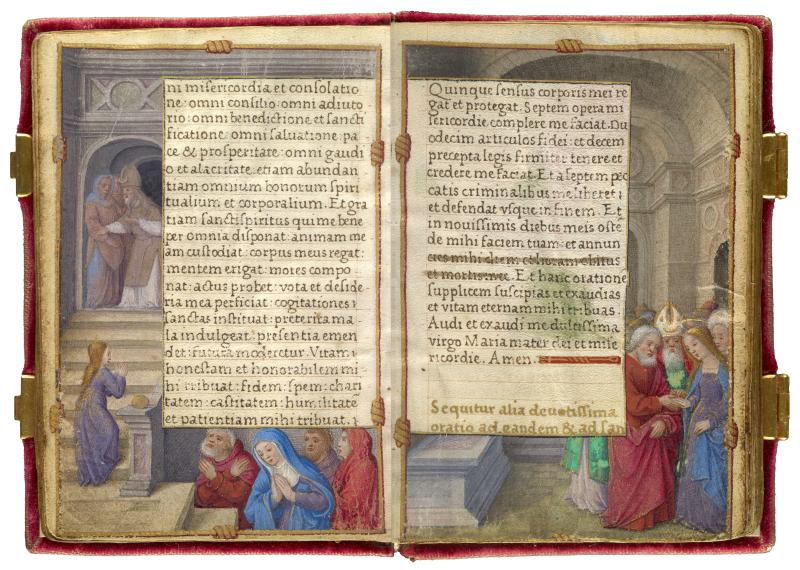 ni misericordia et consolatio
ne: omni consilio: omni adiuto
rio: omni benedictione et sancti
ficatione: omni saluatione: pa
ce & prosperitate: omni gaudi
o et alacritate. etiam abundan
tiam omnium bonorum spiri
tualium et corporalium. Et gra
tiam sanctispiritus qui me bene
per omnia disponat: animam me
am custodiat: corpus meus regat:
mentem erigat: mores compo
nat: actus probet: vota et deside
ria mea perficiat: cogitationes
sanctas instituat: preterita ma
la indulgeat: presentia emen
det: futura moderetur. Vitam
honestam et honorabilem mi
hi tribuat: fidem: spem: chari
tatem: castitatem: humilitatē
et patientiam mihi tribuat.
Quinque sensus corporis mei re
gat et protegat. Septem opera mi
sericordie complere me faciat. Du
odecim articulos fidei: et decem
precepta legis firmiter tenere et
credere me faciat. Et a septem pec
catis criminalibus me liberet:
et defendat vsque in finem. Et
in nouissimis diebus meis oste
de mihi faciem tuam: et annun
cies mihi diem et horam obitus
et mortis mee. Et hanc oratione
supplicem suscipias et exaudias
et vitam eternam mihi tribuas.
Audi et exaudi me dulcissima
virgo Maria mater dei et mise
ricordie. Amen.
Sequitur alia deuotissima
oratio ad eandem & ad san